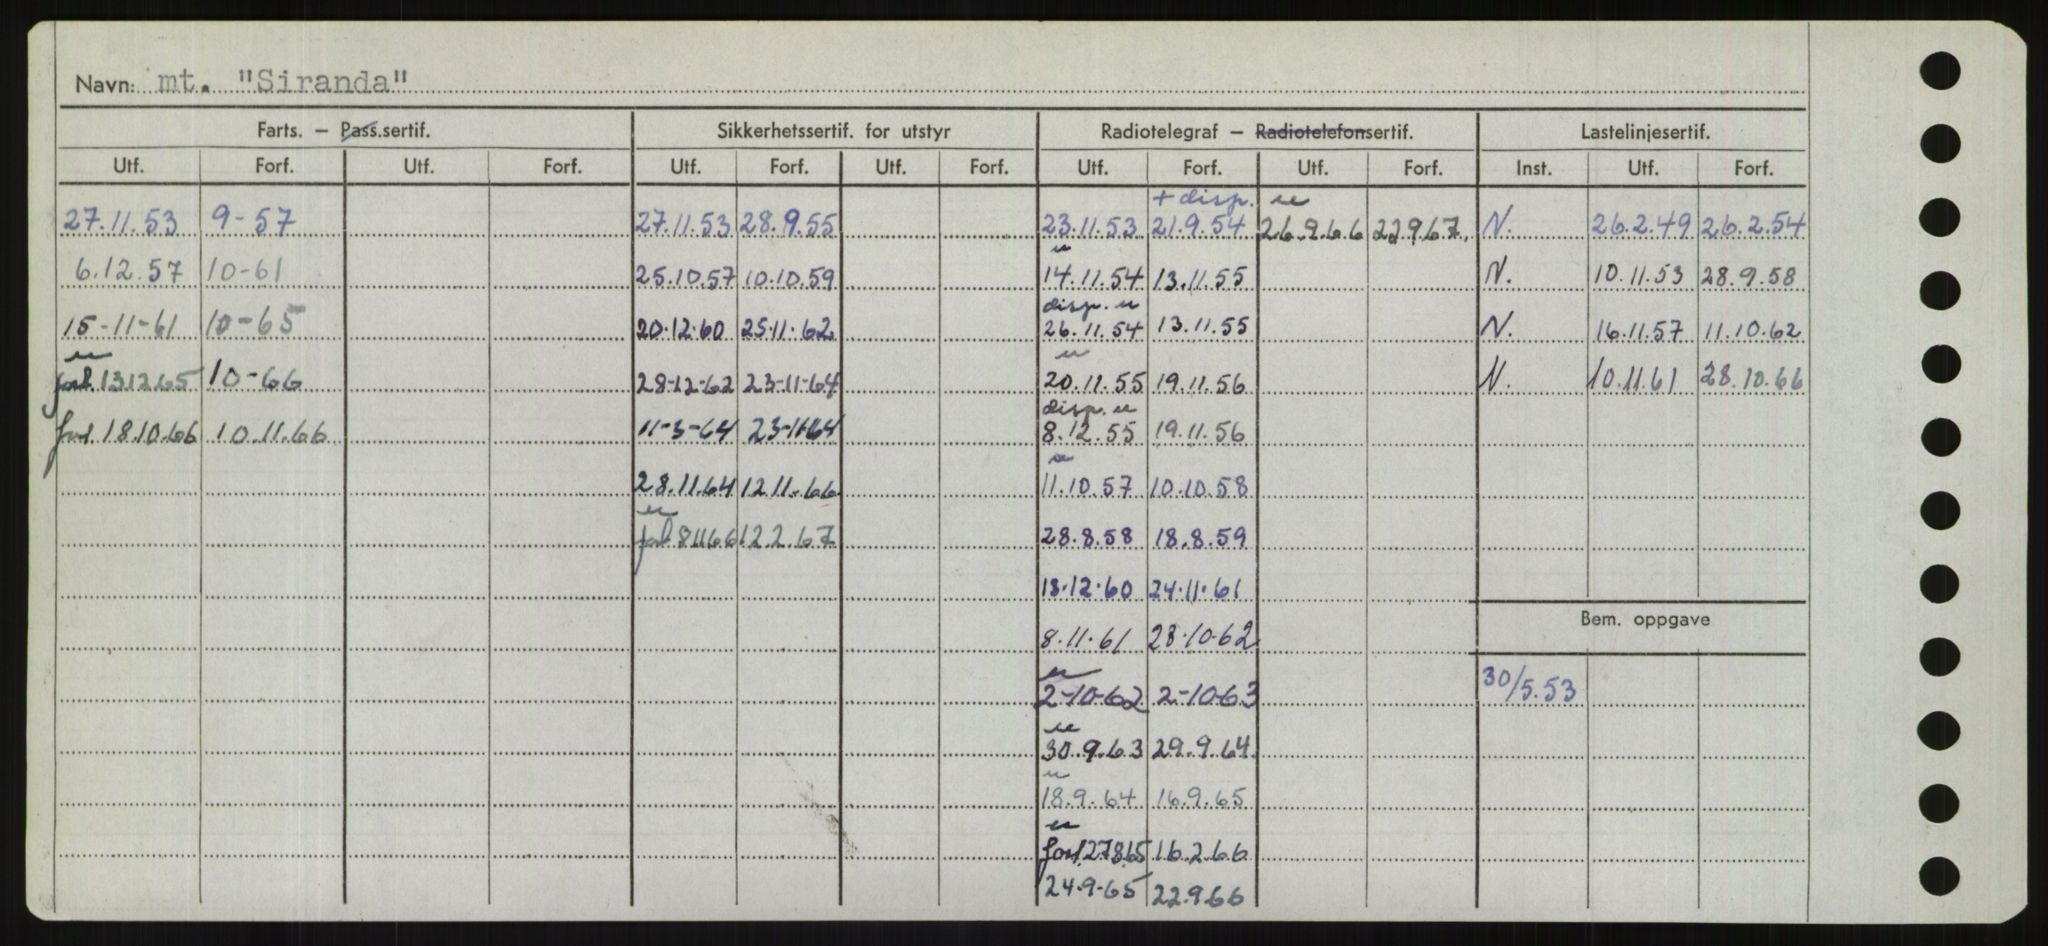 Navn: mt. "Siranda"
Farts. — Pass.sertif. Sikkerhetssertif. for utstyr Radiotelegraf — Radiotelefonsertif. Lastelinjesertif.
Utf. Forf. Utf. Forf. Utf. Forf. Utf. Forf. Utf. Forf. Utf. Forf. Inst. Utf. Forf.
+ disp. u
27.11.53 9-57 27.11.53 28.9.55 23.11.53 21.9.54 26.9.66 22967. N. 26.2.49 26.2.54
u
6.12.57 10-61 25.10.57 10.10.59 14.11.54 13.11.55 N. 10.11.53 28.9.58
disp. u
15-11-61 10-65 20.12.60 25.11.62 26.11.54 13.11.55 N. 16.11.57 11.10.62
u u
forl. 131265 10-66 28-12-62 23-11-64 20.11.55 19.11.56 N. 10.11.61 28.10.66
disp. u
forl. 18.10.66 10.11.66 11-3-64 23-11-64 8.12.55 19.11.56
u
28.11.64 1211.66 11.10.57 10.10.58
u
forl 81166 12.2.67 28.8.58 18.8.59
13.12.60 24.11.61
Bem. oppgave
8.11.61 28.10.62
u
2-10-62 2-10-63 30/5.53
u
30.9.63 29.9.64.
u
18.9.64 16.9.65
u
forl. 27865 16.2.66
24.9-65 22.9.66